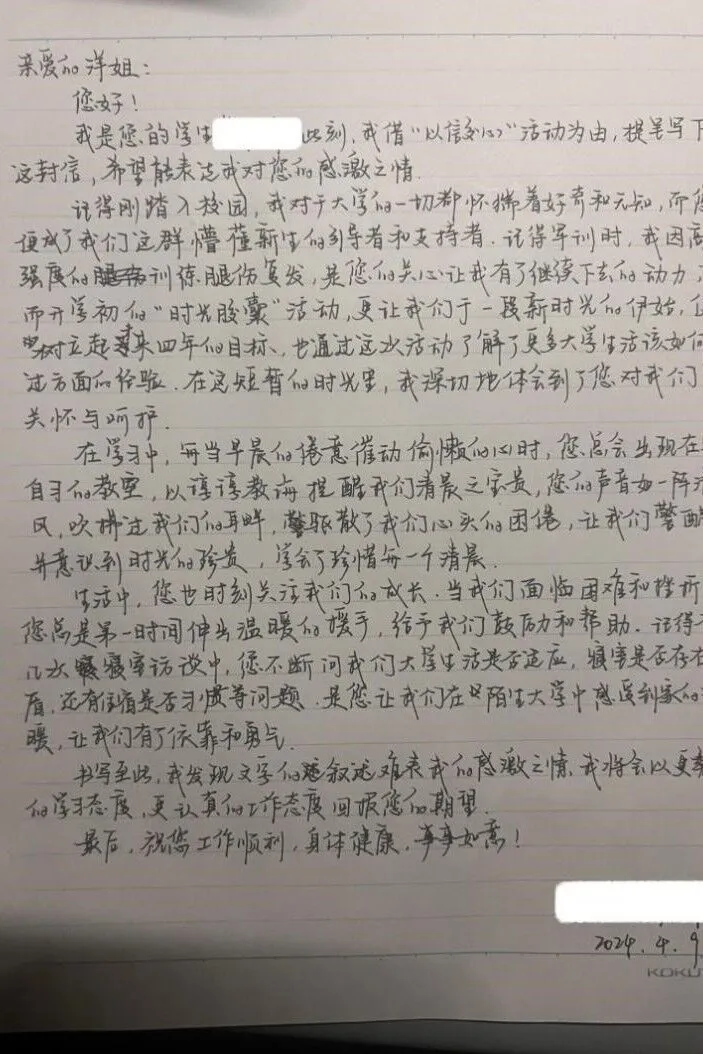 亲爱的洋姐：
您好！
我是您的学生 此刻，我借“以信交心”活动为由，提笔写下
这封信，希望能表达我对您的感激之情.
记得刚踏入校园，我对于大学的一切都怀揣着好奇和无知，而您
便成了我们这群懵懂新生的引导者和支持者.记得军训时，我因高
强度的训练腿伤复发，是您的关心让我有了继续下去的动力，
而开学初的“时光胶囊”活动，更让我们于一段新时光的伊始，
树立起未来四年的目标、也通过这次活动了解了更多大学生活该如何
过方面的经验.在这短暂的时光里，我深切地体会到了您对我们
关怀与呵护.
在学习中，每当早晨的倦意催动偷懒的心时，您总会出现在
自习的教室，以谆谆教诲提醒我们清晨之宝贵，您的声音如一阵
风，吹拂过我们的耳畔，驱散了我们心头的困倦，让我们警醒
并意识到时光的珍贵，学会了珍惜每一个清晨.
生活中，您也时刻关注我们的成长.当我们面临困难和挫折
您总是第一时间伸出温暖的援手，给予我们鼓励和帮助.记得
几次寝室访谈中，您不断问我们大学生活是否适应，寝室是否存在
盾，还有住宿是否习惯等问题.是您让我们在陌生大学中感受到家的
暖，让我们有了依靠和勇气.
书写至此，我发现文字的叙述难表我的感激之情、我将会以更
的学习态度，更认真的工作态度回报您的期望.
最后，祝您工作顺利，身体健康，事事如意！
2024.4.9
KOKU